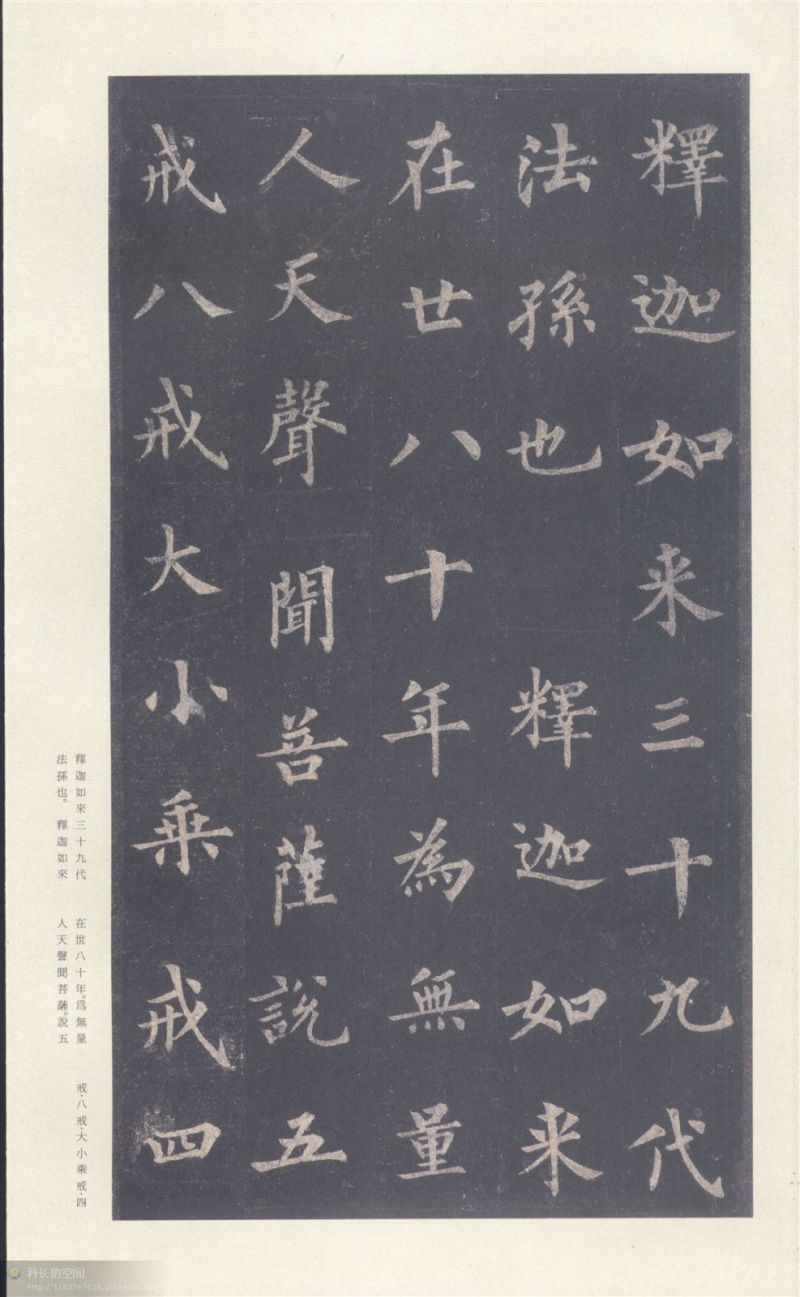 釋迦如来三十九代
法孫也釋迦如来
在世八十年為無量
人天聲聞菩薩說五
戒八戒大小乗戒四
釋迦如來三十九代
法孫也。釋迦如來
在世八十年。爲無量
人天聲聞菩薩。說五
戒·八戒·大小乘戒·四
科长的空间